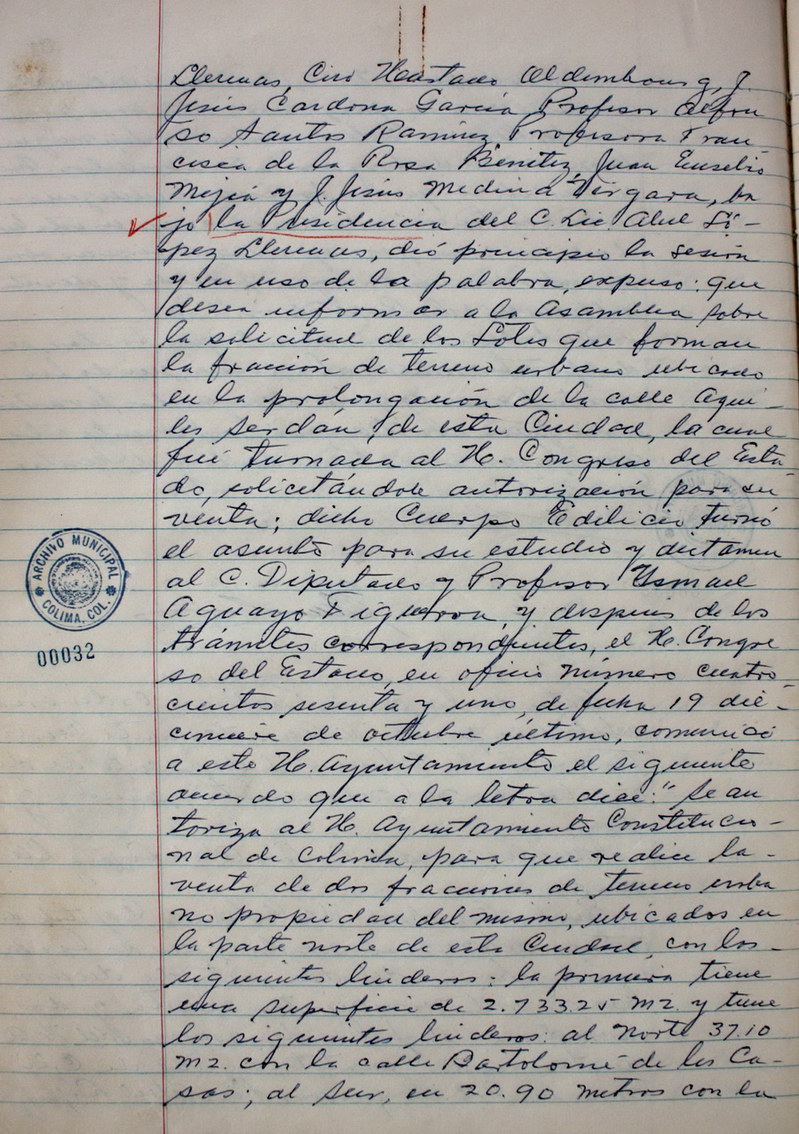 Llerenas, Ciro Hurtado Aldembourg, J.
Jesús Cardona García Profesor Alfon
so Santos Ramírez, Profesora Fran
cisca de la Rosa Benítez, Juan Eusebio
Mejía y J. Jesús Medina Vergara, ba
jo la Presidencia del C. Lic. Abel Ló-
pez Llerenas, dió principio la sesión
y en uso de la palabra, expuso: que
desea informar a la Asamblea sobre
la solicitud de los Lotes que forman
la fracción de terreno urbano ubicado
en la prolongación de la calle Aqui-
les Serdán, de esta Ciudad, la cual
fué turnada al H. Congreso del Esta
do, solicitándole autorización para su
venta; dicho Cuerpo Edilicio turnó
el asunto para su estudio y dictamen
al C. Diputado y Profesor Ysmael
Aguayo Figueroa, y después de los
trámites correspondientes, el H. Congre
so del Estado, en oficio número cuatro
cientos sesenta y uno, de fecha 19 die-
cinueve de octubre último, comunicó
a este H. Ayuntamiento el siguiente
acuerdo que a la letra dice:" Se au
toriza al H. Ayuntamiento Constitucio-
nal de Colima, para que realice la-
venta de dos fracciones de terreno urba
no propiedad del mismo, ubicados en
la parte norte de esta Ciudad, con los-
siguientes linderos: la primera tiene
una superficie de 2.733.25 M2 y tiene
los siguientes linderos: al Norte 37.10
M2. con la calle Bartolomé de las Ca-
sas; al Sur, en 20.90 metros con la
ARCHIVO MUNICIPAL
COLIMA, COL.
00032